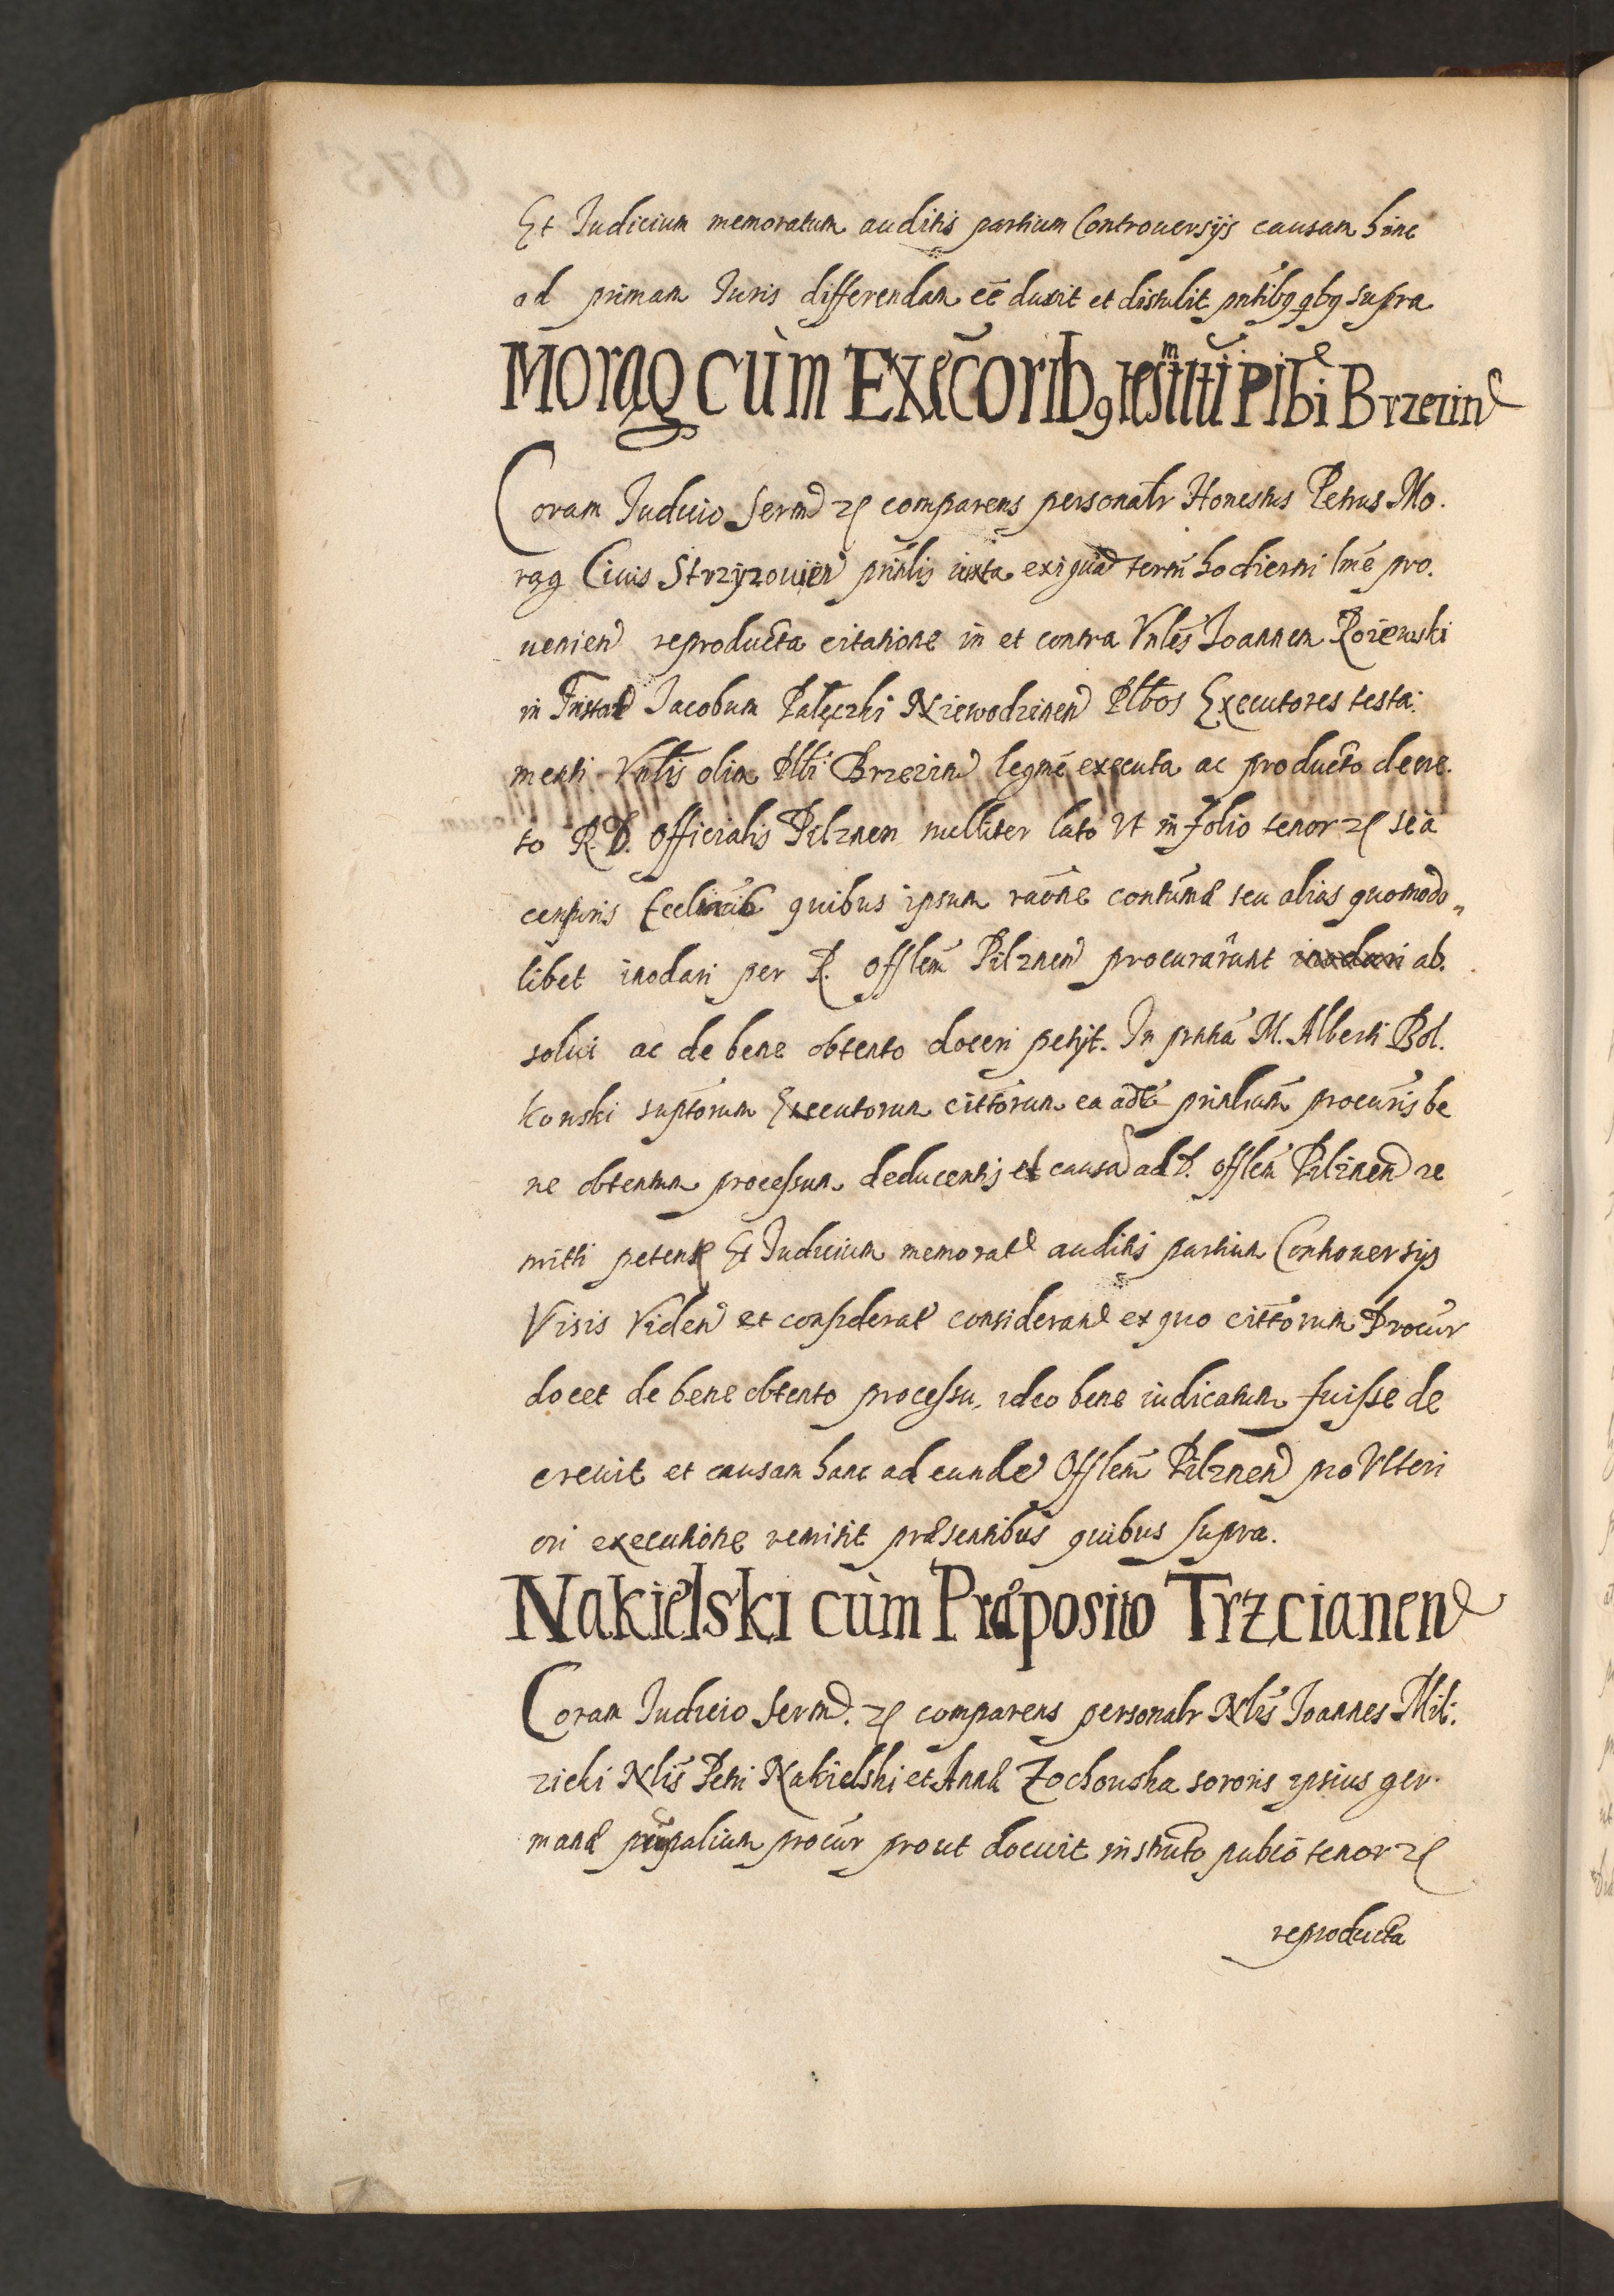 Et Judicium memoratum auditis partium Controuersijs causam hanc
ad primam Juris differendam eē duxit et distulit pntibꝫ qbꝫ supra
Morąg cùm Execoribꝫ testmti Plbi Brzezin
Coram Judicio Serm ꝛc comparens personalr Honestus Petrus Mo.
rąg Ciuis Strzÿzouien prinlis iuxta exigua term hodierni lme pro.
uenien reproducta citatione in et contra Vnles Joannem Roiewski
in Fristat Jacobum Pałęczki Niewodzinen Plbos Executores testa:
menti Vnlis olim Plbi Brzezin legme executa ac producto decre.
to R. D. Officialis Pilznen nulliter lato Vt in folio tenor ꝛc se a
censuris quibus ipsum raone contumā seu alias quomodo„
libet inodari per D. Offlem Pilznen procurarunt inodari ab.
solui ac de bene obtento doceri petijt. In pntia M. Alberti Bol.
konski suptorum Executorum cittorum ea adē prinlium procuris be
ne obtentum processum deducentis et causā ad D. Offlem Pilznen re
mitti petentꝭ Et Judicium memorat auditis partium Controuersijs
Visis Viden et considerat consideran ex quo cittorum Procur
docet de bene obtento processu, ideo bene iudicatum fuisse de
creuit et causam hanc ad eunde Offlem Pilznen pro Vlteri
ori executione remisit præsentibus quibus supra.
Nakielski cùm Præposito Trzcianen
Coram Judicio Serm. ꝛc comparens personalr Nlis Joannes Mil:
zicki Nlis Petri Nakielski et Annę Zochouska sororis ipsius ger.
manę prin̄palium procur prout docuit instruto pubco tenor ꝛc
reproducta